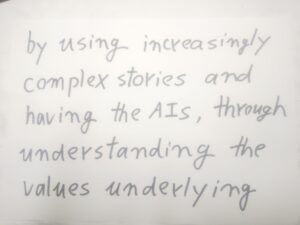 by using increasingly
complex stories and
having the AIs, through
understanding the
values underlying